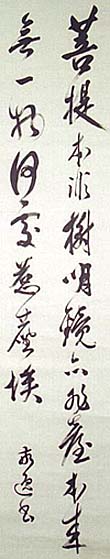 菩提本非樹明鏡亦非臺本来
無一物何處惹塵埃
書